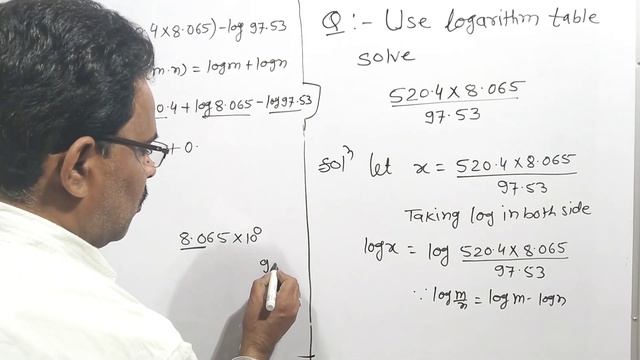 4 × 8.065) - log 97.53
m·n) = log m + log n
0.4 + log 8.065 - log 97.53
+ 0.
8.065 × 10⁰
9
Q :- Use logarithm table
solve
520.4 × 8.065
97.53
Solⁿ let x = 520.4 × 8.065
97.53
Taking log in both side
log x = log 520.4 × 8.065
97.53
∵ log m/n = log m - log n